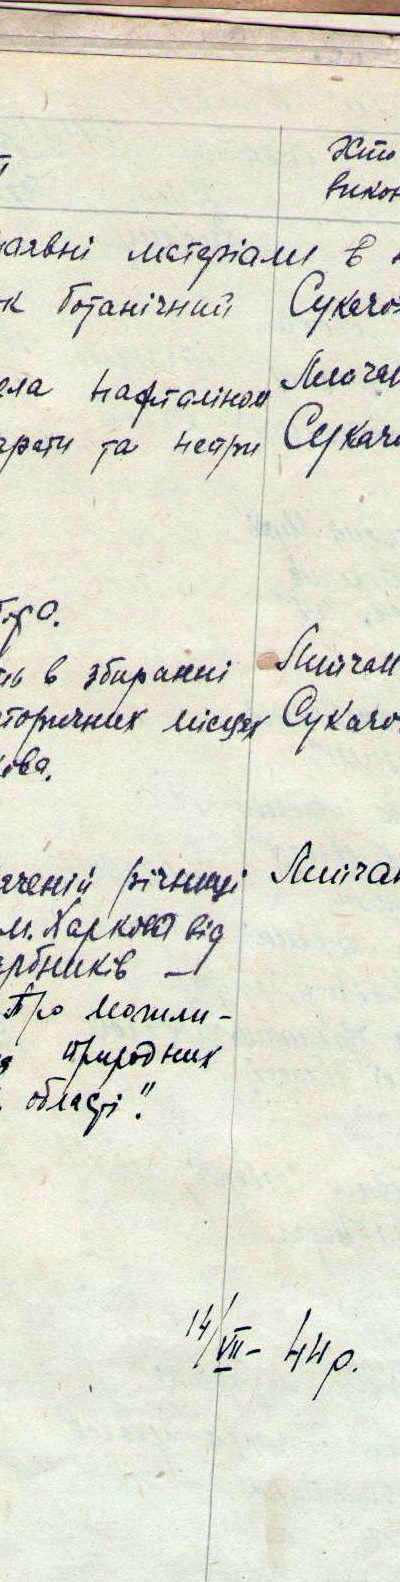 Хто
викон
наявні матеріали в
к ботанічний Сукачо
ла нафталіном
арати та нетри Сукачо
бюро.
ь в збиранні Личан
сторичних місцях Сукачо
кова.
аченій річниці Личан
м. Харкова від
арбників —
Про можли-
природних
області".
14/VII - 44 р.